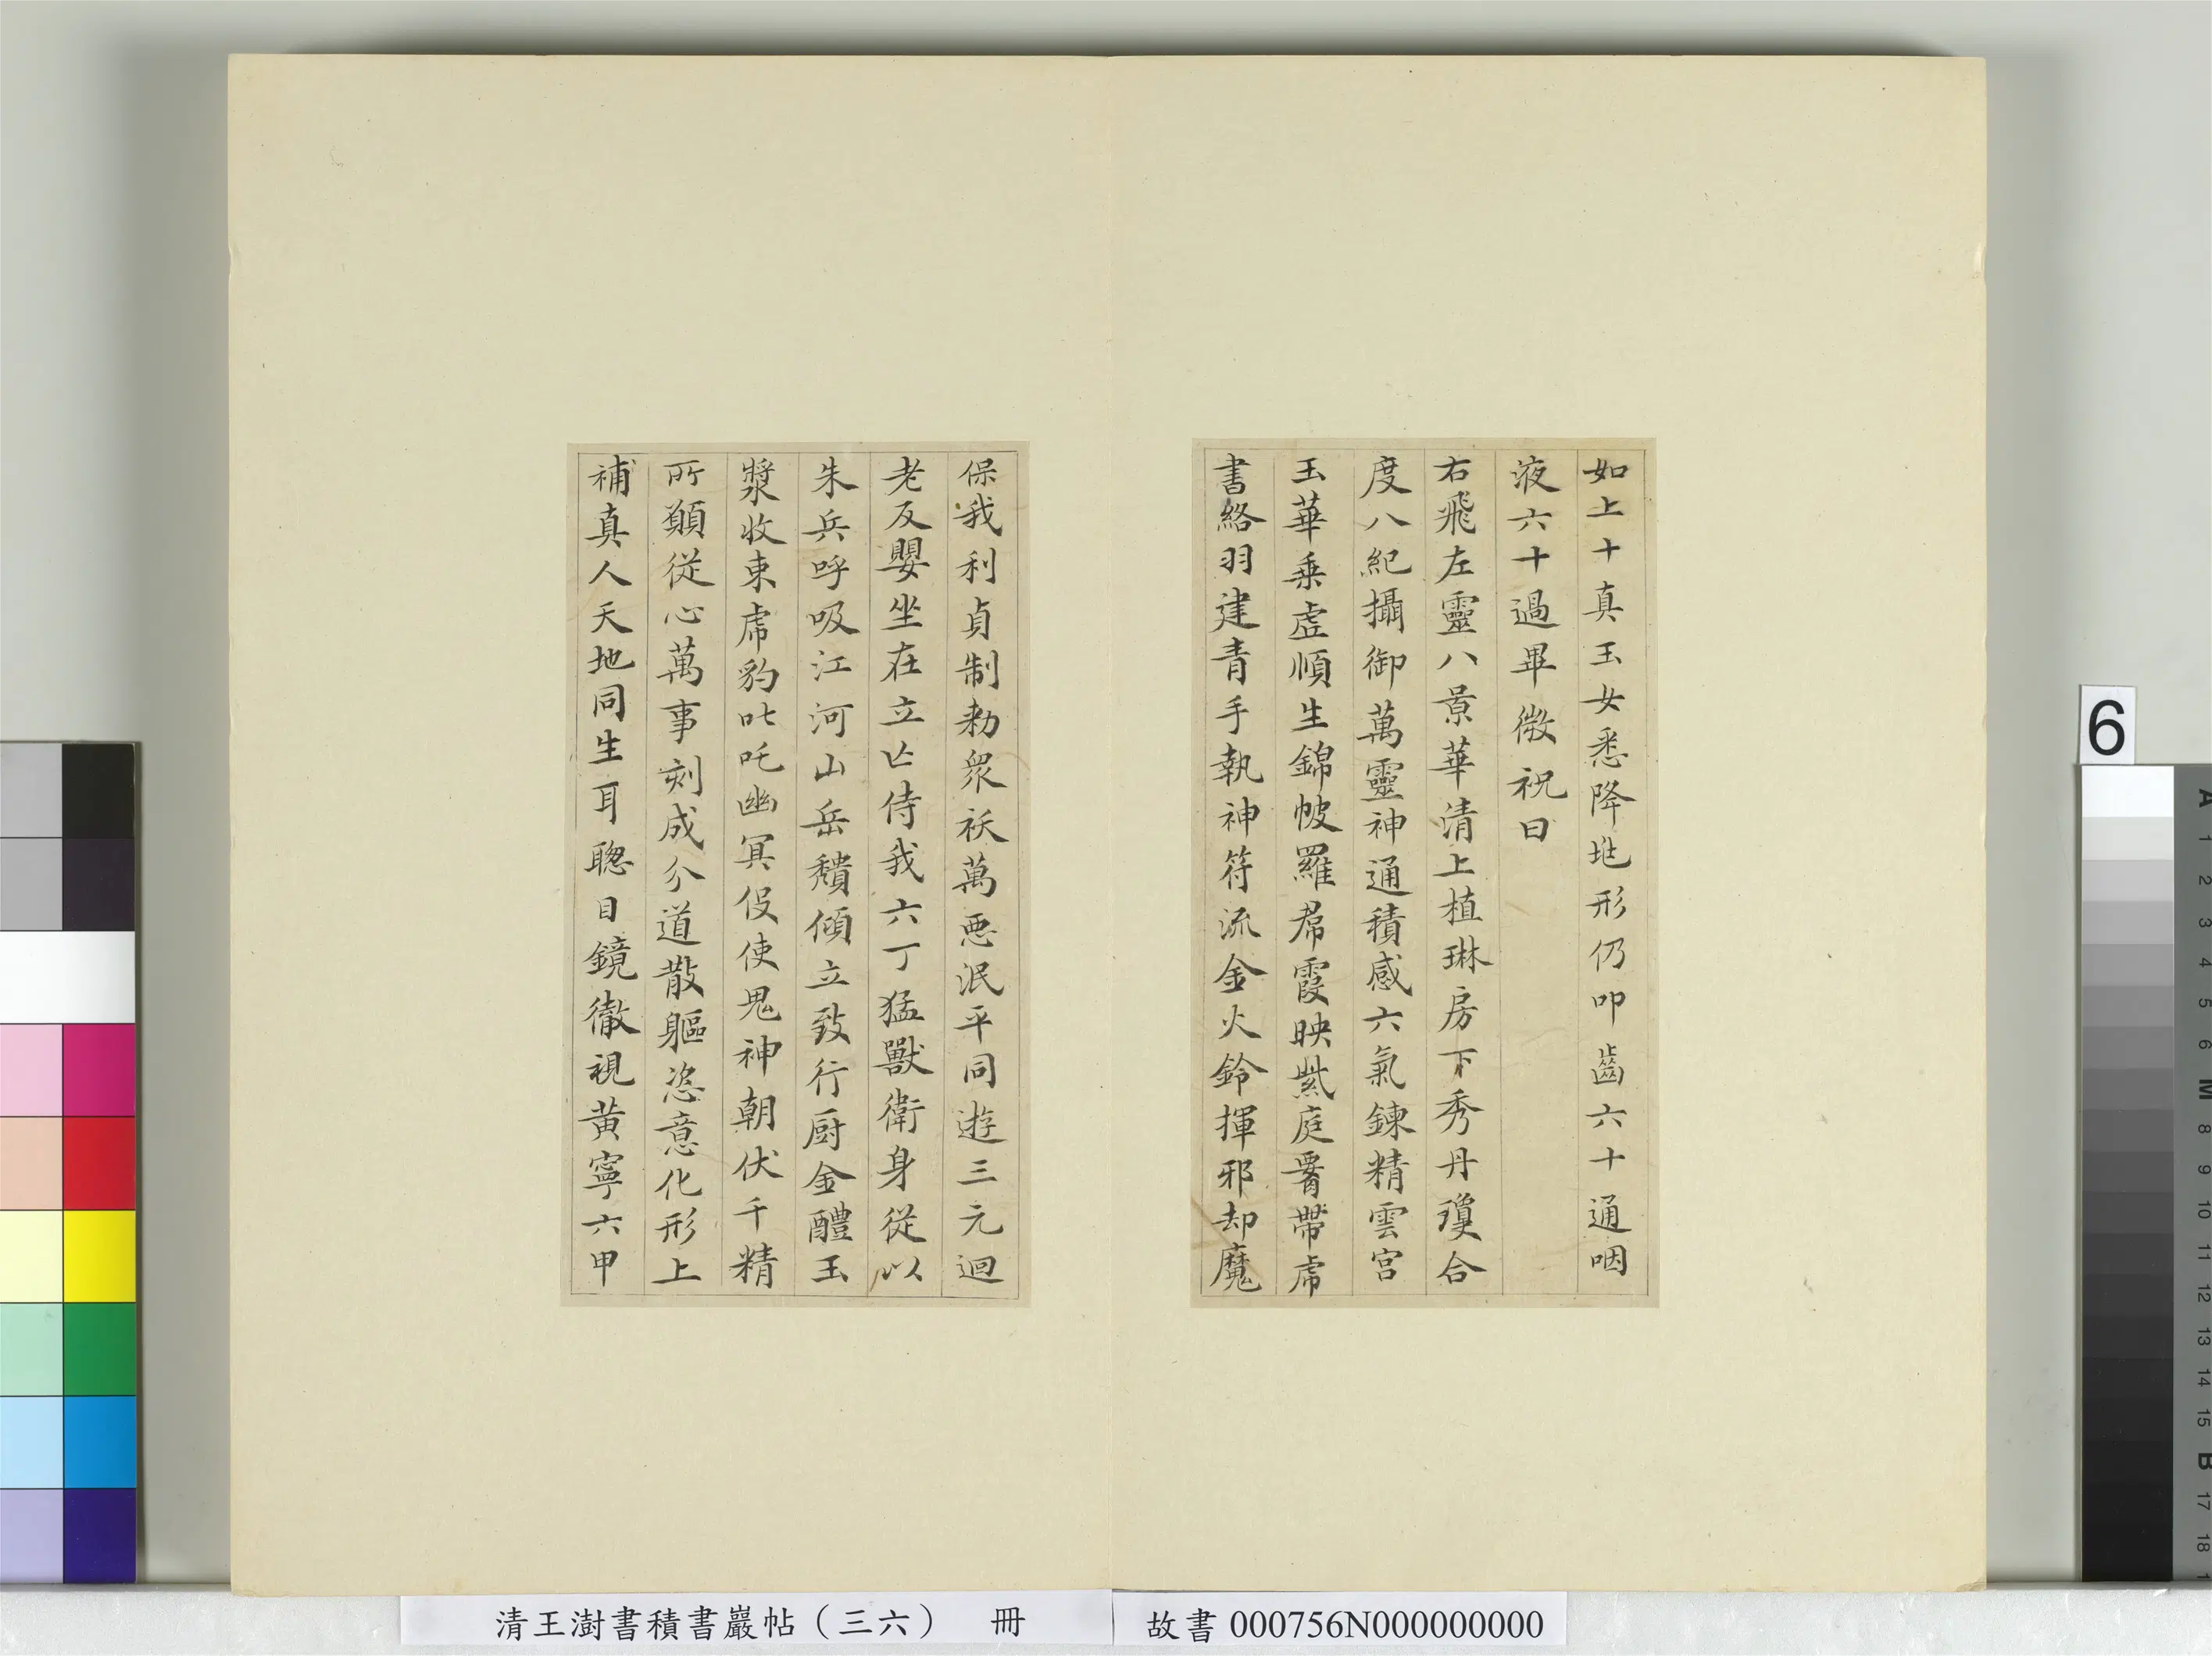 如上十真玉女悉降地形仍叩齒六十通咽
液六十過畢微祝曰
右飛左靈八景華清上植琳房下秀丹瓊合
度八紀攝御萬靈神通積感六氣鍊精雲宮
玉華乗虛順生錦帔羅帬霞映紫庭帶虎
書絡羽建青手執神符流金火鈴揮邪却魔
保我利貞制勑衆祅萬惡泯平同遊三元迴
老反嬰坐在立亡侍我六丁猛獸衛身從以
朱兵呼吸江河山岳穨傾立致行厨金醴玉
漿收束虎豹叱吒幽冥役使鬼神朝伏千精
所願從心萬事剋成分道散軀恣意化形上
補真人天地同生耳聰目鏡徹視黃寧六甲
清王澍書積書巖帖（三六） 冊
故書 000756N000000000
6
A 1 2 3 4 5 6 M 8 9 10 11 12 13 14 15 B 17 18